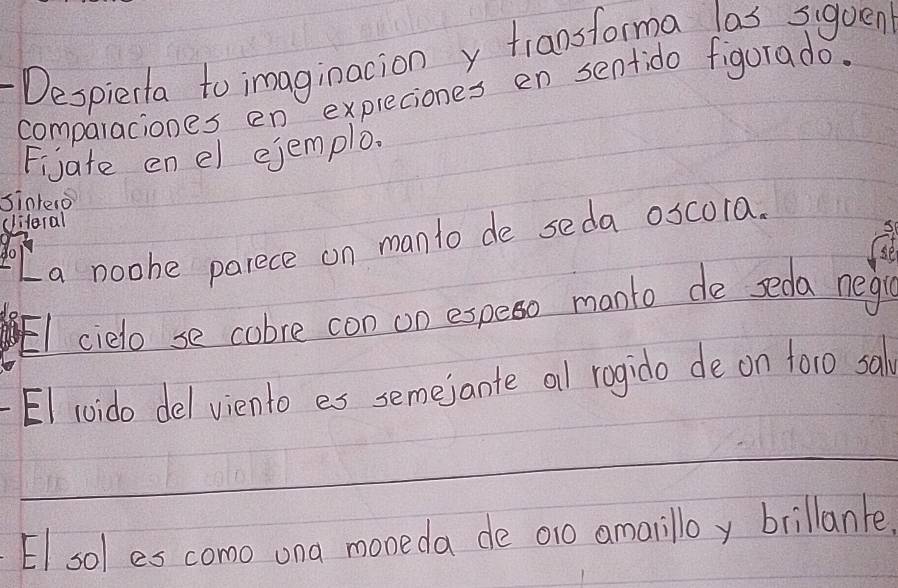 -Despierta to imaginacion y transforma las siguient
comparaciones en expreciones en sentido figurado.
Fijate en el ejemplo.
literal
La noche parece un manto de seda oscura.
El cielo se cubre con un espeso manto de seda negro
-El ruido del viento es semejante al rogido de un toro salv
-El sol es como una moneda de oro amarillo y brillante.